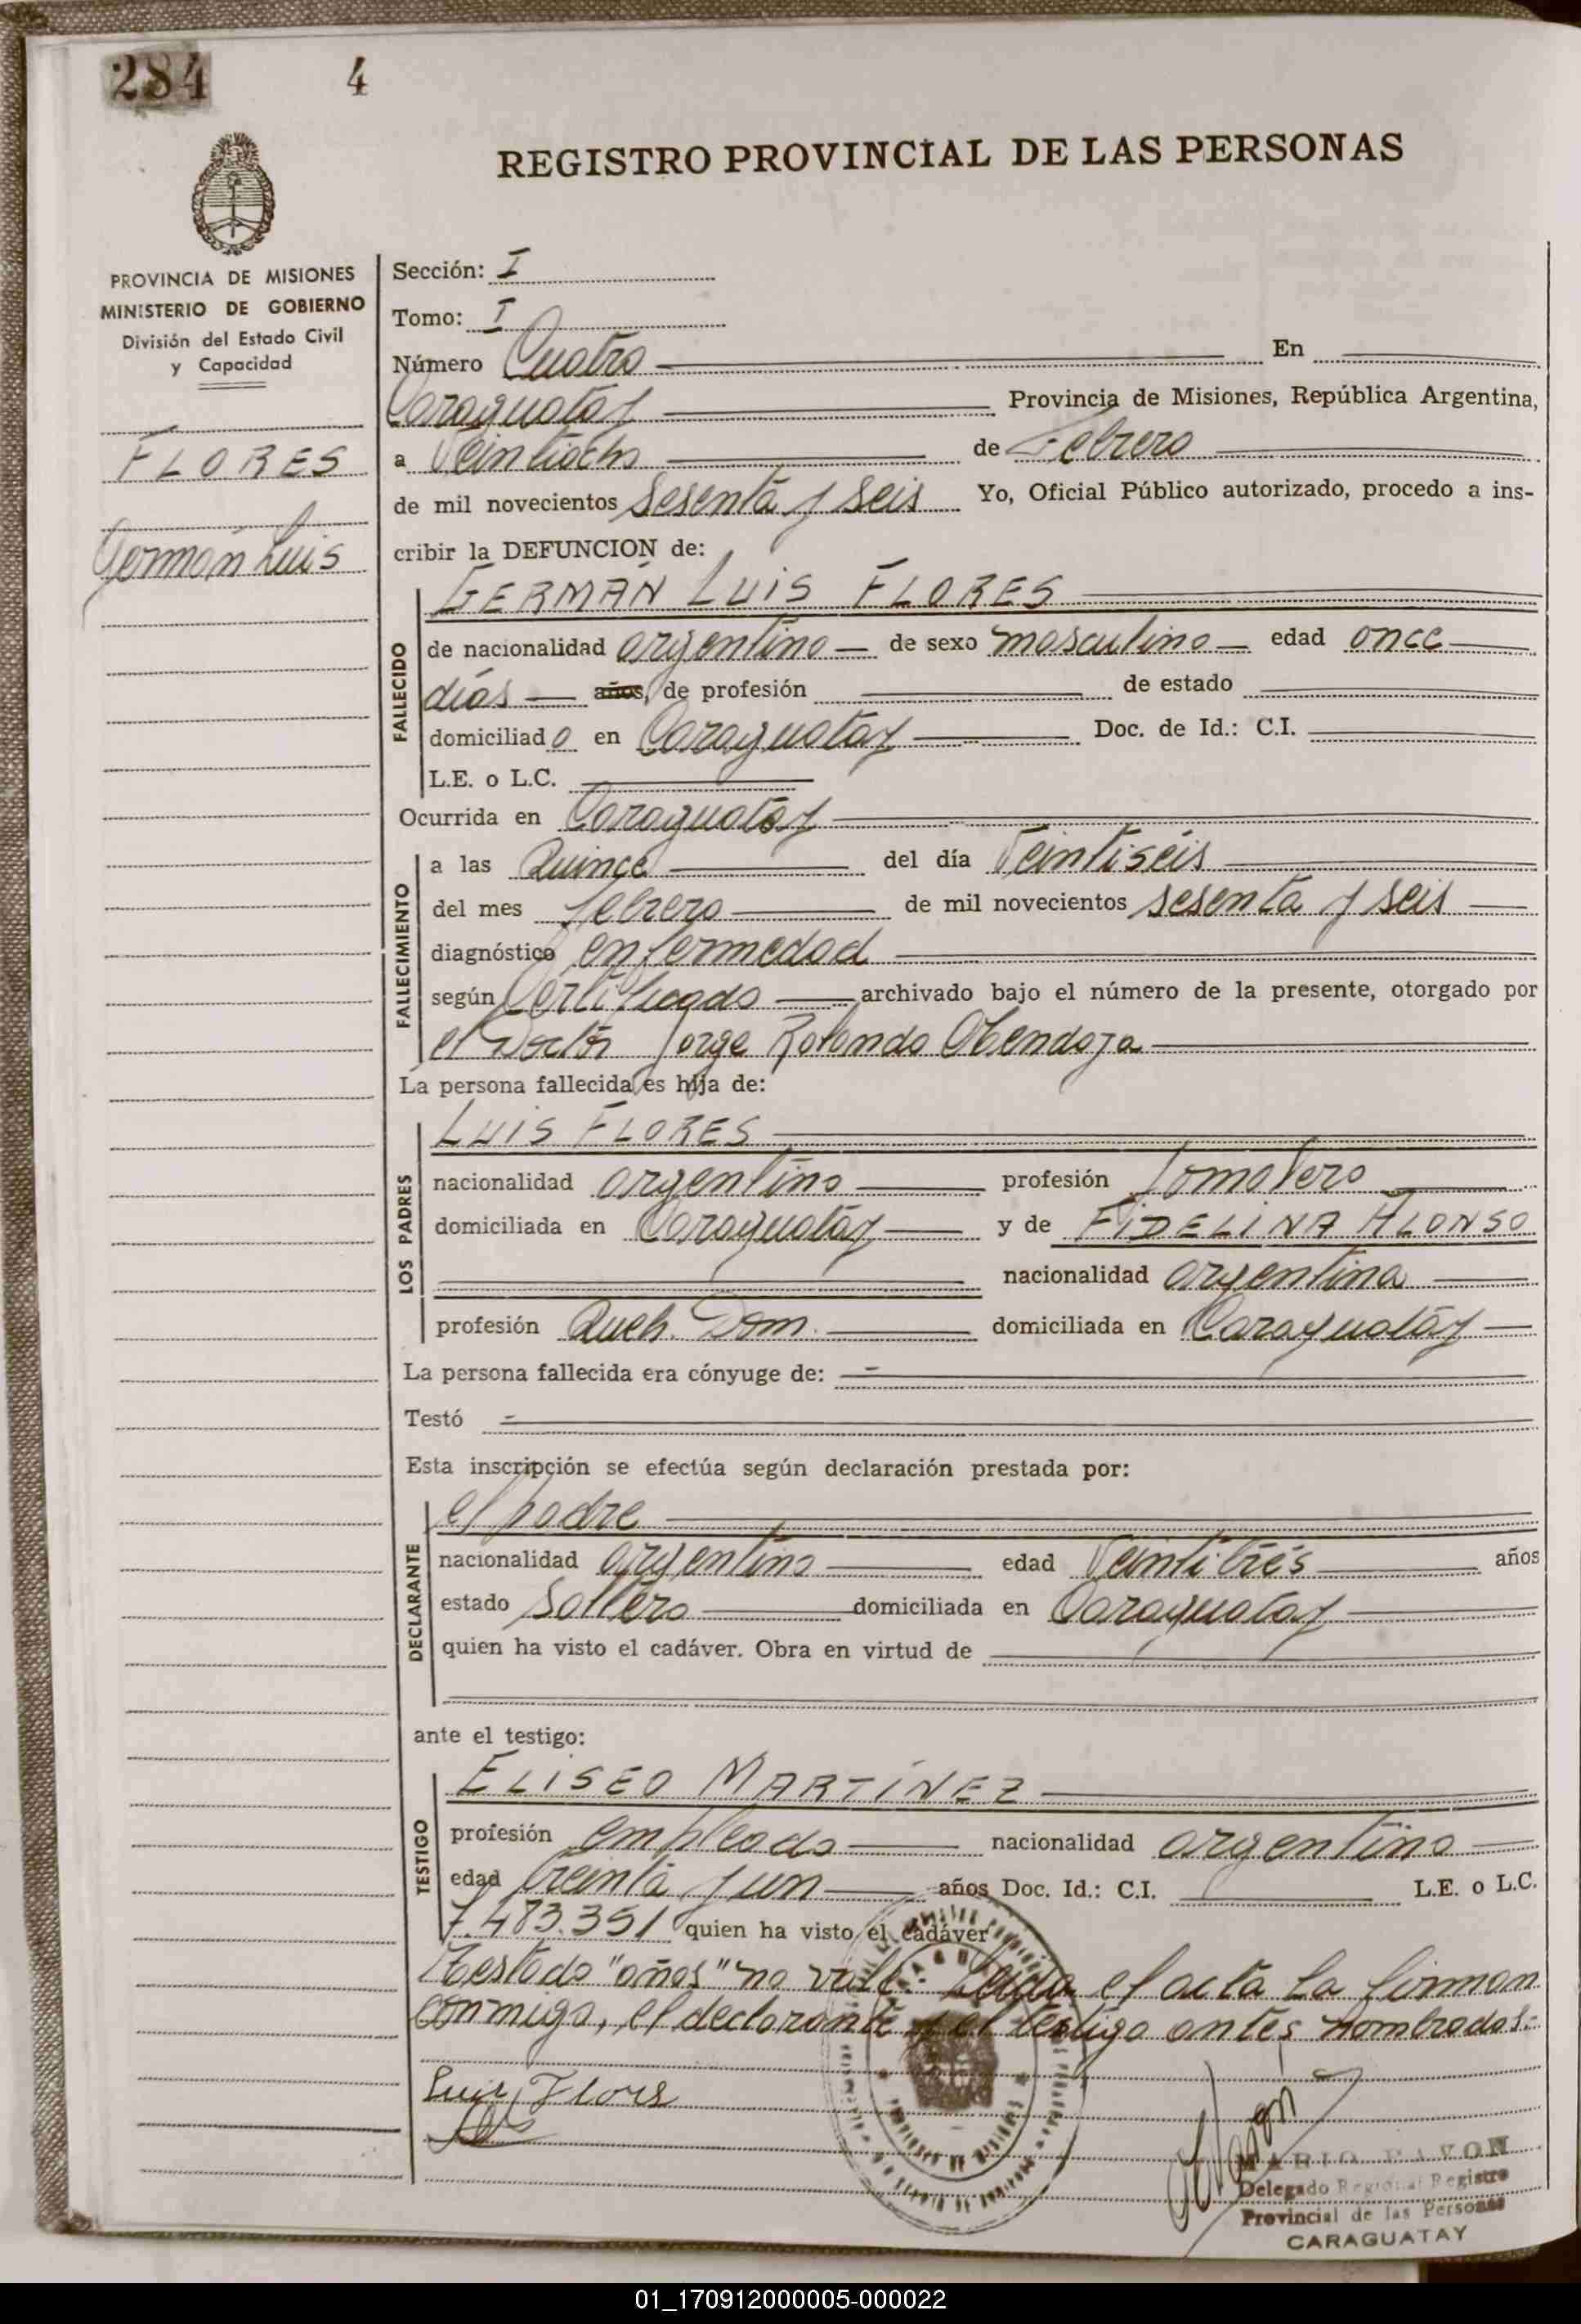 284 4
REGISTRO PROVINCIAL DE LAS PERSONAS
PROVINCIA DE MISIONES
MINISTERIO DE GOBIERNO
División del Estado Civil
y Capacidad
FLORES
Germán Luis
Sección: I
Tomo: I
Número Cuatro En
Caraguatay Provincia de Misiones, República Argentina,
a Veintiocho de Febrero
de mil novecientos sesenta y seis Yo, Oficial Público autorizado, procedo a ins-
cribir la DEFUNCION de:
GERMÁN LUIS FLORES
FALLECIDO
de nacionalidad argentino de sexo masculino edad once
días años, de profesión de estado
domiciliado en Caraguatay Doc. de Id.: C.I.
L.E. o L.C.
Ocurrida en Caraguatay
FALLECIMIENTO
a las Quince del día Veintiséis
del mes febrero de mil novecientos sesenta y seis
diagnóstico enfermedad
según Certificado archivado bajo el número de la presente, otorgado por
el Doctor Jorge Rolando Mendoza
La persona fallecida es hija de:
LUIS FLORES
LOS PADRES
nacionalidad argentino profesión Jornalero
domiciliada en Caraguatay y de FIDELINA ALONSO
nacionalidad argentina
profesión Queh. Dom. domiciliada en Caraguatay
La persona fallecida era cónyuge de:
Testó
Esta inscripción se efectúa según declaración prestada por:
el padre
DECLARANTE
nacionalidad argentino edad Veintitrés años
estado Soltero domiciliada en Caraguatay
quien ha visto el cadáver. Obra en virtud de
ante el testigo:
ELISEO MARTÍNEZ
TESTIGO
profesión empleado nacionalidad argentino
edad treinta y un años Doc. Id.: C.I. L.E. o L.C.
7.483.351 quien ha visto el cadáver
Testado "años" no vale.- Leída el acta la firman
conmigo, el declarante y el testigo antes nombrados.-
Luis Flores
MARIO PAVON
Delegado Regional Registro
Provincial de las Personas
CARAGUATAY
01_170912000005-000022